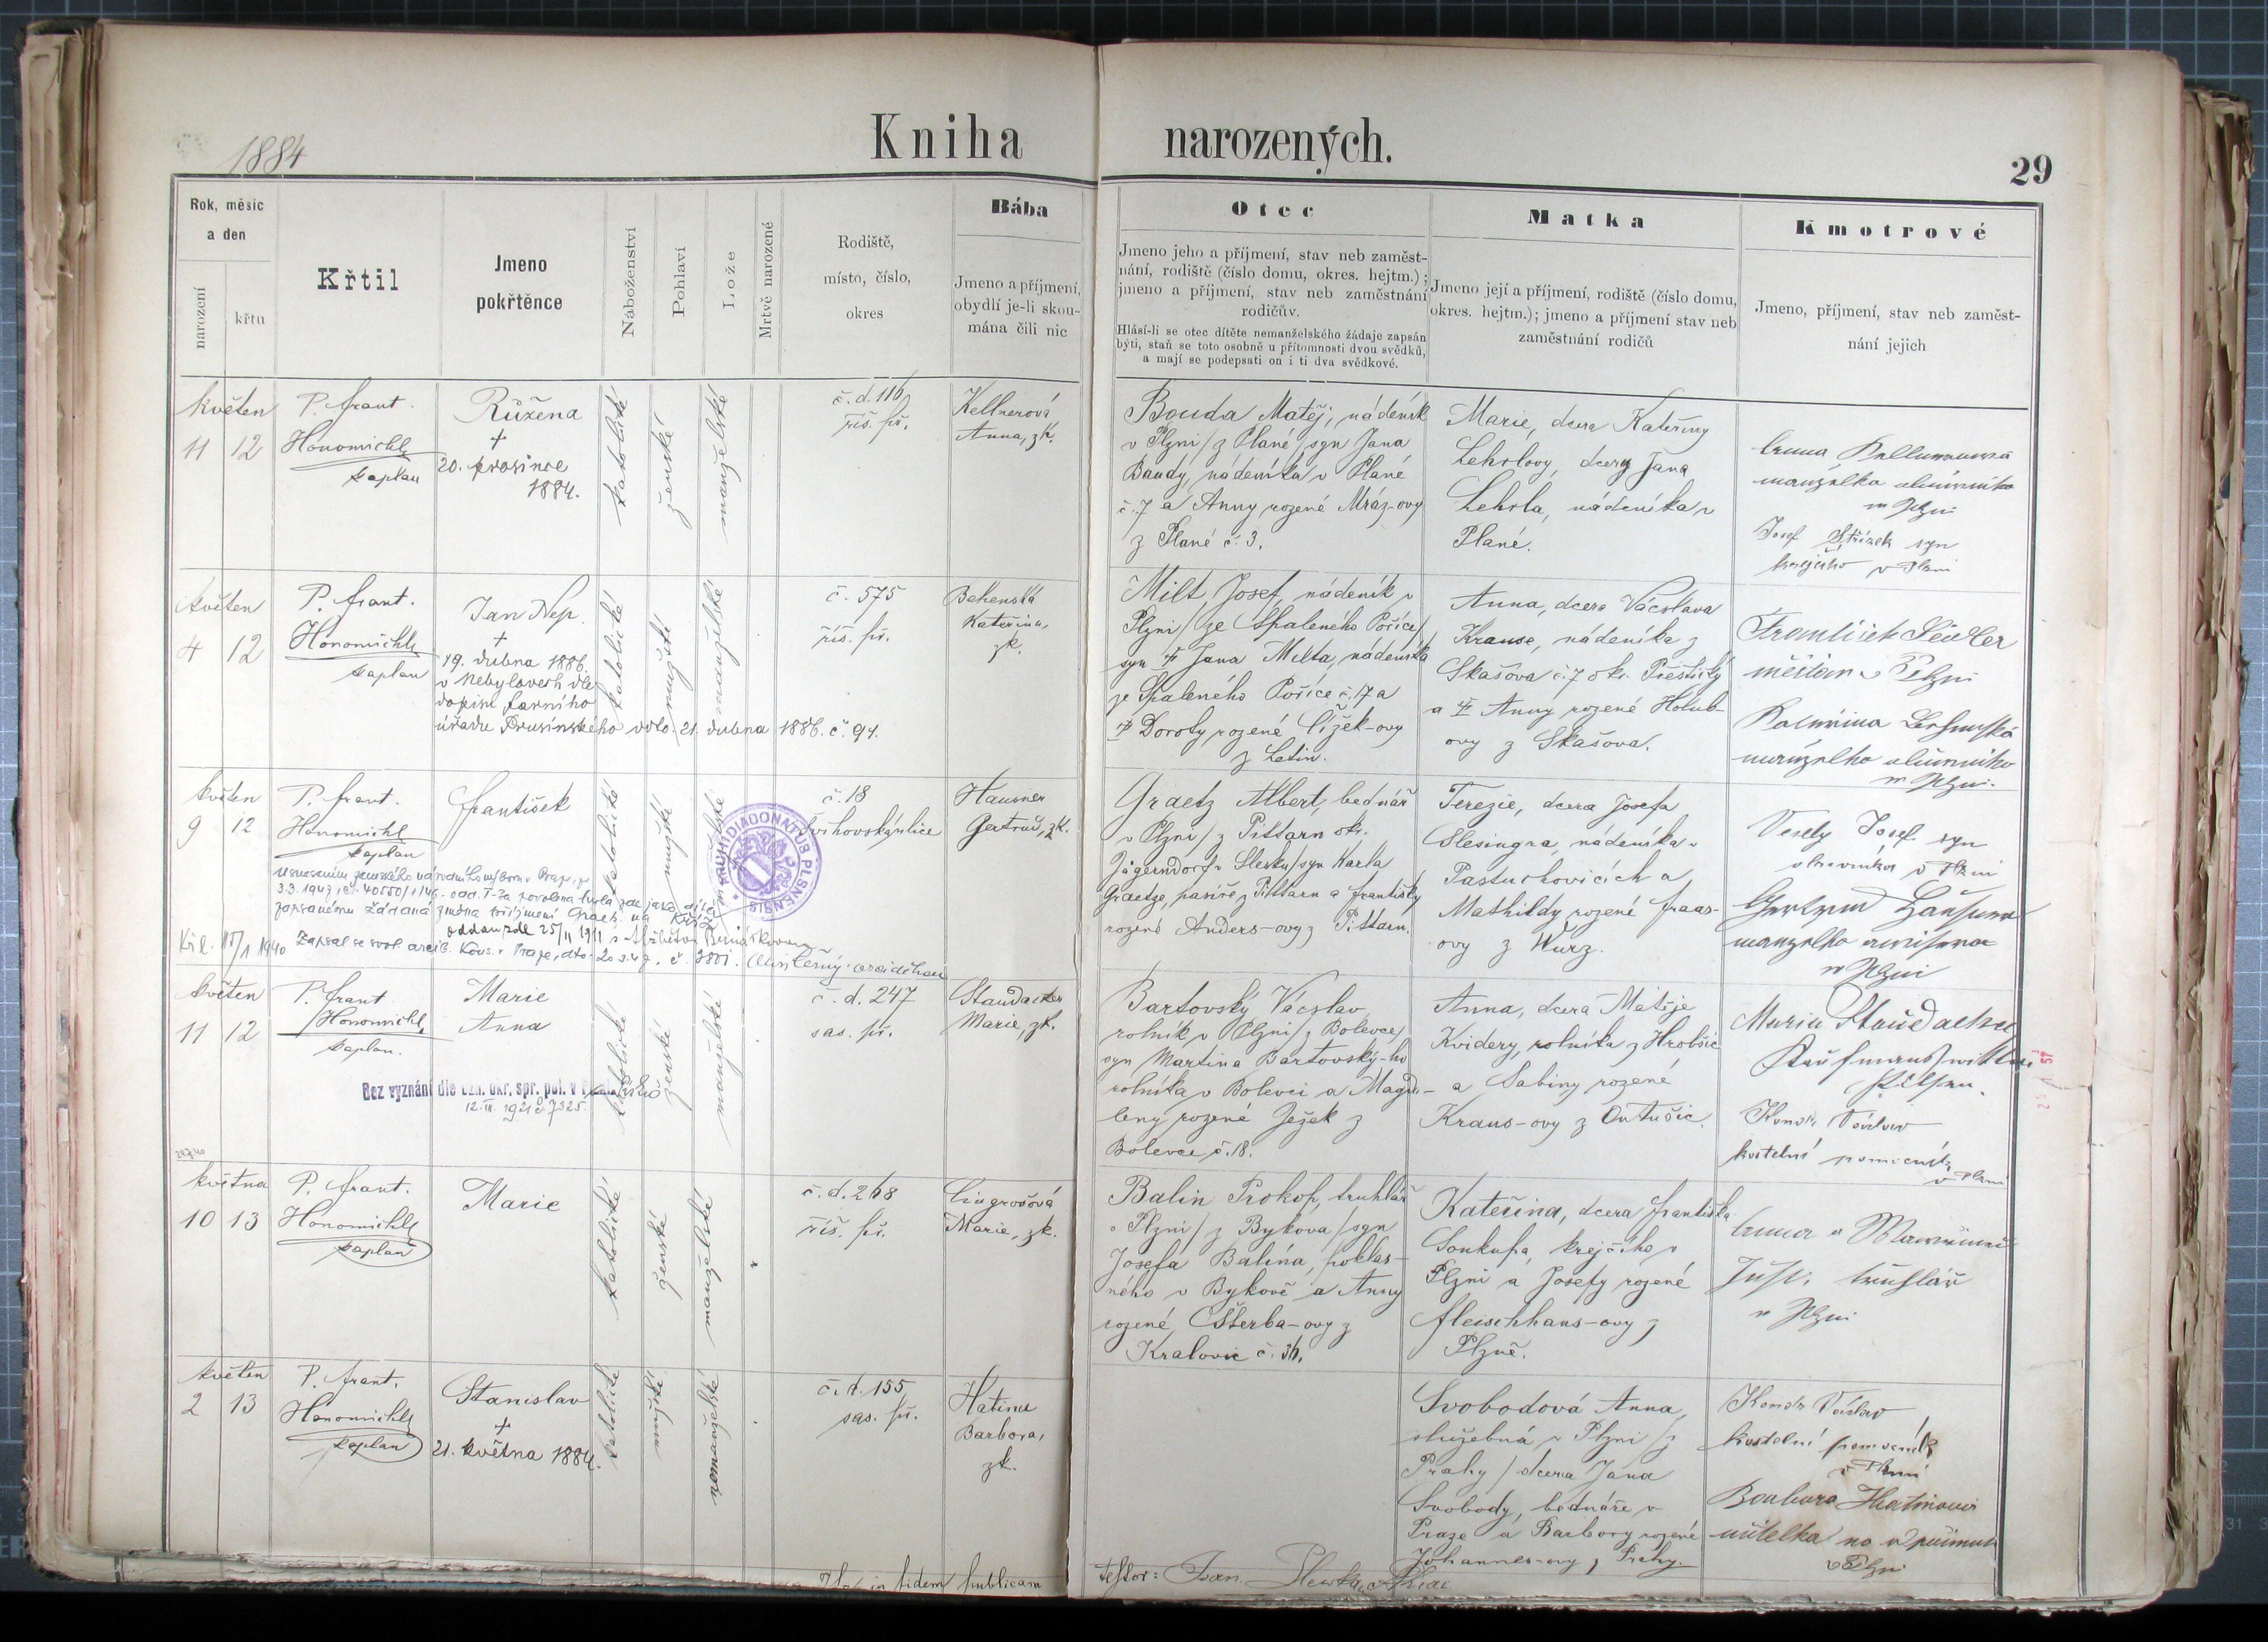 1884
Kniha narozených.
29
Rok, měsíc
a den
narození
křtu
Křtil
Jmeno
pokřtěnce
Náboženství
Pohlaví
Lože
Mrtvě narozené
Rodiště,
místo, číslo,
okres
Bába
Jmeno a příjmení,
obydlí je-li skou-
mána čili nic
Otec
Jmeno jeho a příjmení, stav neb zaměst-
nání, rodiště (číslo domu, okres. hejtm.);
jmeno a příjmení, stav neb zaměstnání
rodičův.
Hlásí-li se otec dítěte nemanželského žádaje zapsán
býti, staň se toto osobně u přítomnosti dvou svědků,
a mají se podepsati on i ti dva svědkové.
Matka
Jmeno její a příjmení, rodiště (číslo domu,
okres. hejtm.); jmeno a příjmení stav neb
zaměstnání rodičů
Kmotrové
Jmeno, příjmení, stav neb zaměst-
nání jejich
květen
11 12
P. Frant.
Honomichl
kaplan
Růžena
+
20. prosince
1884.
katolické
ženské
manželské
č. d. 116
říš. př.
Kellnerová
Anna, zk.
Bouda Matěj, nádeník
v Plzni / z Plané / syn Jana
Baudy, nádeníka v Plané
č. 7 a Anny rozené Mráz-ovy
z Plané č. 3.
Marie, dcera Kateřiny
Lehrlovy, dcery Jana
Lehrla, nádeníka v
Plané.
manželka
Josef Střízek syn
krejčího v Plzni
květen
4 12
P. Frant.
Honomichl
kaplan
Jan Nep.
+
19. dubna 1886.
v Nebylovech dle
dopisu farního
úřadu Prusinského ddto. 21. dubna 1886. č. 94.
katolické
mužské
manželské
č. 575
říš. př.
Bekenská
Kateřina,
zk.
Milt Josef, nádeník v
Plzni / ze Spáleného Poříčí /
syn Jana Milta, nádeníka
ze Spáleného Poříčí č. 17 a
Doroty rozené Čížek-ovy
z Letin.
Anna, dcera Václava
Krause, nádeníka z
Skašova č. 7 okr. Přeštický
a Anny rozené Holub-
ovy z Skašova.
František Seidler
měšťan v Plzni
květen
9 12
P. Frant.
Honomichl
kaplan
František
katolické
mužské
manželské
č. 18
Švihovská ulice
Hausner
Gertrud, zk.
Graetz Albert, bednář
v Plzni / z Pittarn okr.
Jägerndorf v Slezku / syn Karla
Graetze, pasíře z Pittarn a Františky
rozené Anders-ovy z Pittarn.
Terezie, dcera Josefa
Slesingra, nádeníka v
Pastuchovicích a
Mathildy rozené Fraas-
ovy z Würz.
Veselý Josef syn
v Plzni
oddán zde 25/11 1911 s Alžbětou
květen
11 12
P. Frant
Honomichl,
kaplan.
Marie
Anna
Bez vyznání dle ozn. okr. spr. pol. v
12. III. 1921 č. 7325.
katolické
ženské
manželské
č. d. 247
sas. př.
Staudacher
Marie, zk.
Bartovský Václav
rolník v Plzni z Bolevce /
syn Martina Bartovský-ho
rolníka v Bolevci a Magda-
leny rozené Ježek z
Bolevce č. 18.
Anna, dcera Matěje
Kvidery, rolníka z Hrobšic
a Sabiny rozené
Kraus-ovy z Ontušic.
Marie Staudacher
Václav
kostelní pomocník
v Plzni
května
10 13
P. Frant.
Honomichl
kaplan
Marie
katolické
ženské
manželské
č. d. 268
říš. př.
Cingrošová
Marie, zk.
Balin Prokop, truhlář
v Plzni / z Bykova / syn
Josefa Balína, poklas-
ného v Bykově a Anny
rozené Čšterba-ovy z
Kralovic č. 36.
Kateřina, dcera Františka
Soukupa, krejčího v
Plzni a Josefy rozené
Fleischhans-ovy z
Plzně.
květen
2 13
P. Frant.
Honomichl
kaplan
Stanislav
+
21. května 1884.
katolické
mužské
nemanželské
č. d. 155
sas. př.
Hatina
Barbora,
zk.
Svobodová Anna,
služebná v Plzni / z
Prahy / dcera Jana
Svobody, bednáře v
Praze a Barbory rozené
Johannes-ovy z Prahy.
Václav
kostelní pomocník
v Plzni
Barbora Hatinová
v Plzni
in fidem publicam
testor: